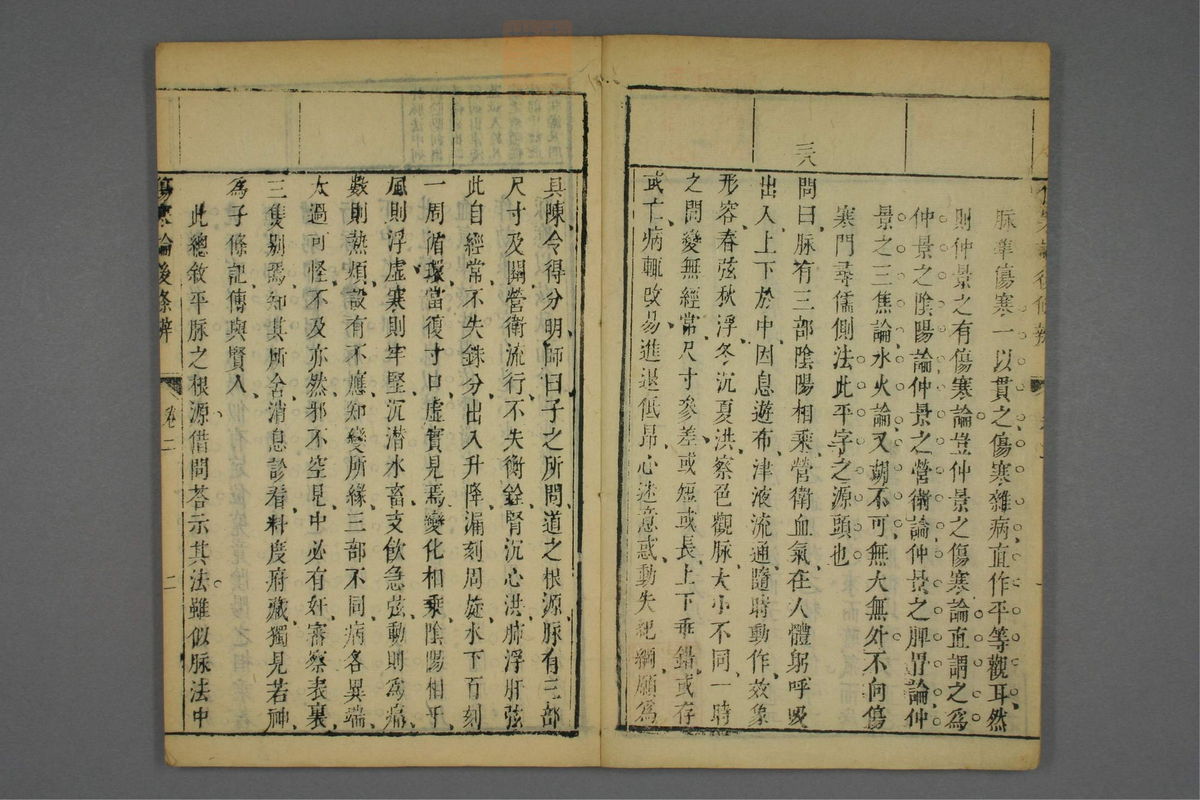 脉準傷寒一以貫之傷寒雜病直作平等觀耳然
則仲景之有傷寒論豈仲景之傷寒論直謂之爲
仲景之陰陽論仲景之營衛論仲景之脾胃論仲
景之三焦論水火論又朝不可無大無外不向傷
寒門尋儒側法此平字之源頭也
三八
問曰脉有三部陰陽相乘營衛血氣在人體躬呼吸
出入上下於中因息遊布津液流通隨時動作效象
形容春弦秋浮冬沉夏洪察色觀脉大小不同一時
之間變無經常尺寸參差或短或長上下乖錯或存
或亡病輒改易進退低昂心迷意惑動失紀綱願爲
具陳令得分明師曰子之所問道之根源脉有三部
尺寸及關營衛流行不失衡銓腎沉心洪肺浮肝弦
此自經常不失銖分出入升降漏刻周旋水下百刻
一周循環當復寸口虛實見焉變化相乘陰陽相干
風則浮虛寒則牢堅沉潜水畜支飲急弦動則爲痛
數則熱煩設有不應知變所緣三部不同病各異端
太過可怪不及亦然邪不空見中必有奸審察表裏
三隻别焉知其所舍消息診看料度府藏獨見若神
爲子條記傳與賢人
此總敘平脉之根源借問荅示其法雖似脉法中
傷寒論後條辨
卷二
二